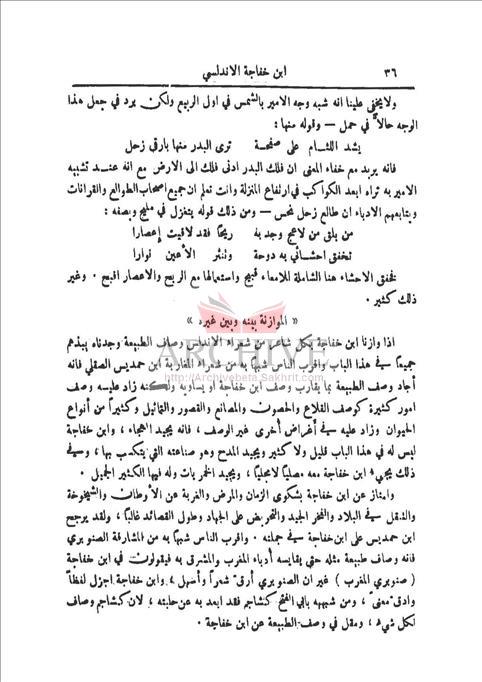 ٣٦ ابن خفاجة الاندلسي
ولا يخفى علينا انه شبه وجه الامير بالشمس في اول الربيع ولكن برد في جعل هذا
الوجه حالاً في حمل — وقوله منها :
يشد اللثام على صفحة ترى البدر منها بارقى زحل
فانه يريد مع خفاء المعنى ان فلك البدر ادنى فلك الى الارض مع انه عند تشبيه
الامير به تراه ابعد الكواكب في ارتفاع المنزلة وانت تعلم ان جميع اصحاب الطوالع والقرانات
ويتابعهم الادباء ان طالع زحل نحس — ومن ذلك قوله يتغزل في مليح ويصفه :
من يلق من لاعج وجد به ريحًا فقد لاقيت إعصارا
تخفق احشائي به دوحة وتنثر الأعين نوارا
فخفق الاحشاء هنا الشاملة للامعاء قبيح واستعمالها مع الريح والاعصار اقبح . وغير
ذلك كثير .
« الموازنة بينه وبين غيره »
ARCHIVE
http://Archivebeta.Sakhrit.com
اذا وازنا ابن خفاجة بكل شاعر من شعراء الاندلس وصاف الطبيعة وجدناه يبذهم
جميعًا في هذا الباب واقرب الناس شبهًا به من شعراء المغاربة ابن حمديس الصقلي فانه
أجاد وصف الطبيعة بما يقارب وصف ابن خفاجة او يساويه ولكنه زاد عليه وصف
امور كثيرة كوصف القلاع والحصون والمصانع والقصور والتماثيل وكثيرًا من أنواع
الحيوان وزاد عليه في أغراض أخرى غير الوصف ، فانه يجيد الهجاء ، وابن خفاجة
ليس له في هذا الباب قليل ولا كثير ويجيد المدح وهو صناعته التي يتكسب بها ، وفي
ذلك يجيء ابن خفاجة معه مصليًا لا مجليًا ، ويجيد الخمريات وله فيها الكثير الجميل .
وامتاز عن ابن خفاجة بشكوى الزمان والمرض والغربة عن الأوطان والشيخوخة
والتنقل في البلاد والفخر الجيد والتحريض على الجهاد وطول القصائد غالبًا ، ولقد يرجح
ابن حمديس على ابن خفاجة في جملته . واقرب الناس شبهًا به من المشارقة الصنوبري
فانه وصاف طبيعة مثله حتى يقايسه أدباء المغرب والمشرق به فيقولون في ابن خفاجة
( صنوبري المغرب ) غير ان الصنوبري أرق شعراً وأسهل ، وابن خفاجة اجزل لفظاً
وادق معنى ، ومن شبهه بابي الفتح كشاجم فقد ابعد به عن حلبته ، لان كشاجم وصاف
لكل شيء ، ومقل في وصف الطبيعة عن ابن خفاجة .